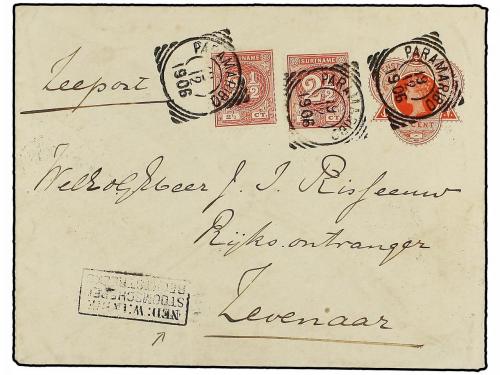 Zeepost
PARAMARIBO
12
1906
SURINAME
2½
2½ CT.
SURINAME
2½
CT.
PARAMARIBO
1906
PARAMARIBO
1906
CENT
WelEdelHeer J. J. Risseeuw
Rijksontvanger
Zevenaar
NED: W:
STOOMSCHEPEN